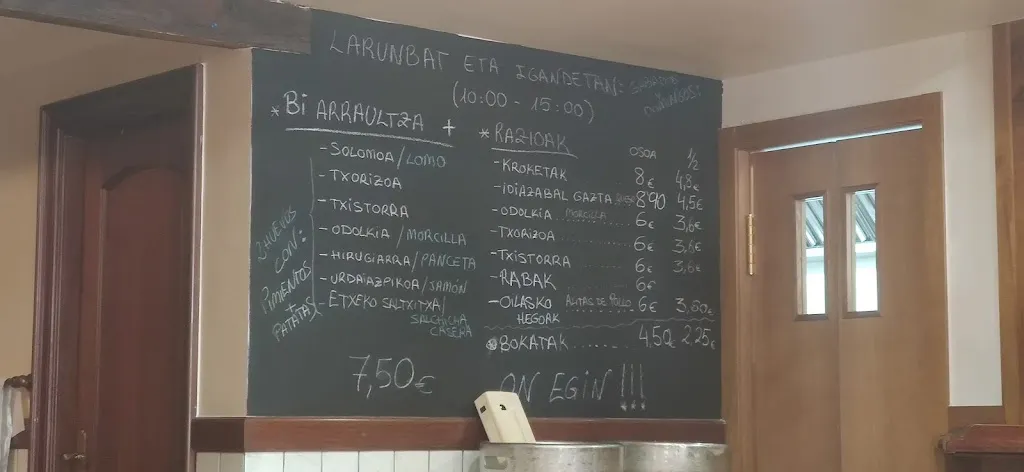 LARUNBAT ETA IGANDETAN: SABADOS Y DOMINGOS:
(10:00 - 15:00)
* BI ARRAULTZA +
- SOLOMOA / LOMO
- TXORIZOA
- TXISTORRA
- ODOLKIA / MORCILLA
- HIRUGIARRA / PANCETA
- URDAIAZPIKOA / JAMÓN
- ETXEKO SALTXITXA /
SALCHICHA
CASERA
2 HUEVOS
CON:
PIMIENTOS
+
PATATAS
7,50€
* RAZIOAK OSOA 1/2
- KROKETAK 8€ 4,8€
- IDIAZABAL GAZTA QUESO 8'90 4,5€
- ODOLKIA MORCILLA 6€ 3,6€
- TXORIZOA 6€ 3,6€
- TXISTORRA 6€ 3,6€
- RABAK 6€
- OILASKO ALITAS DE POLLO 6€ 3,60€
HEGOAK
BOKATAK 4,50€ 2,25€
ON EGIN !!!